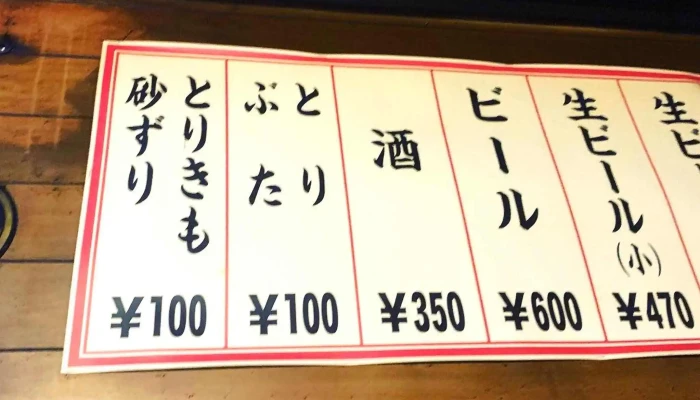 生ビ
生ビール(小)
¥470
ビール
¥600
酒
¥350
とり
ぶた
¥100
とりきも
砂ずり
¥100